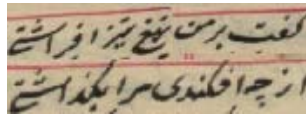 گفت بر من تیغ تیز افراشتی
از چه افکندی مرا بگذاشتی